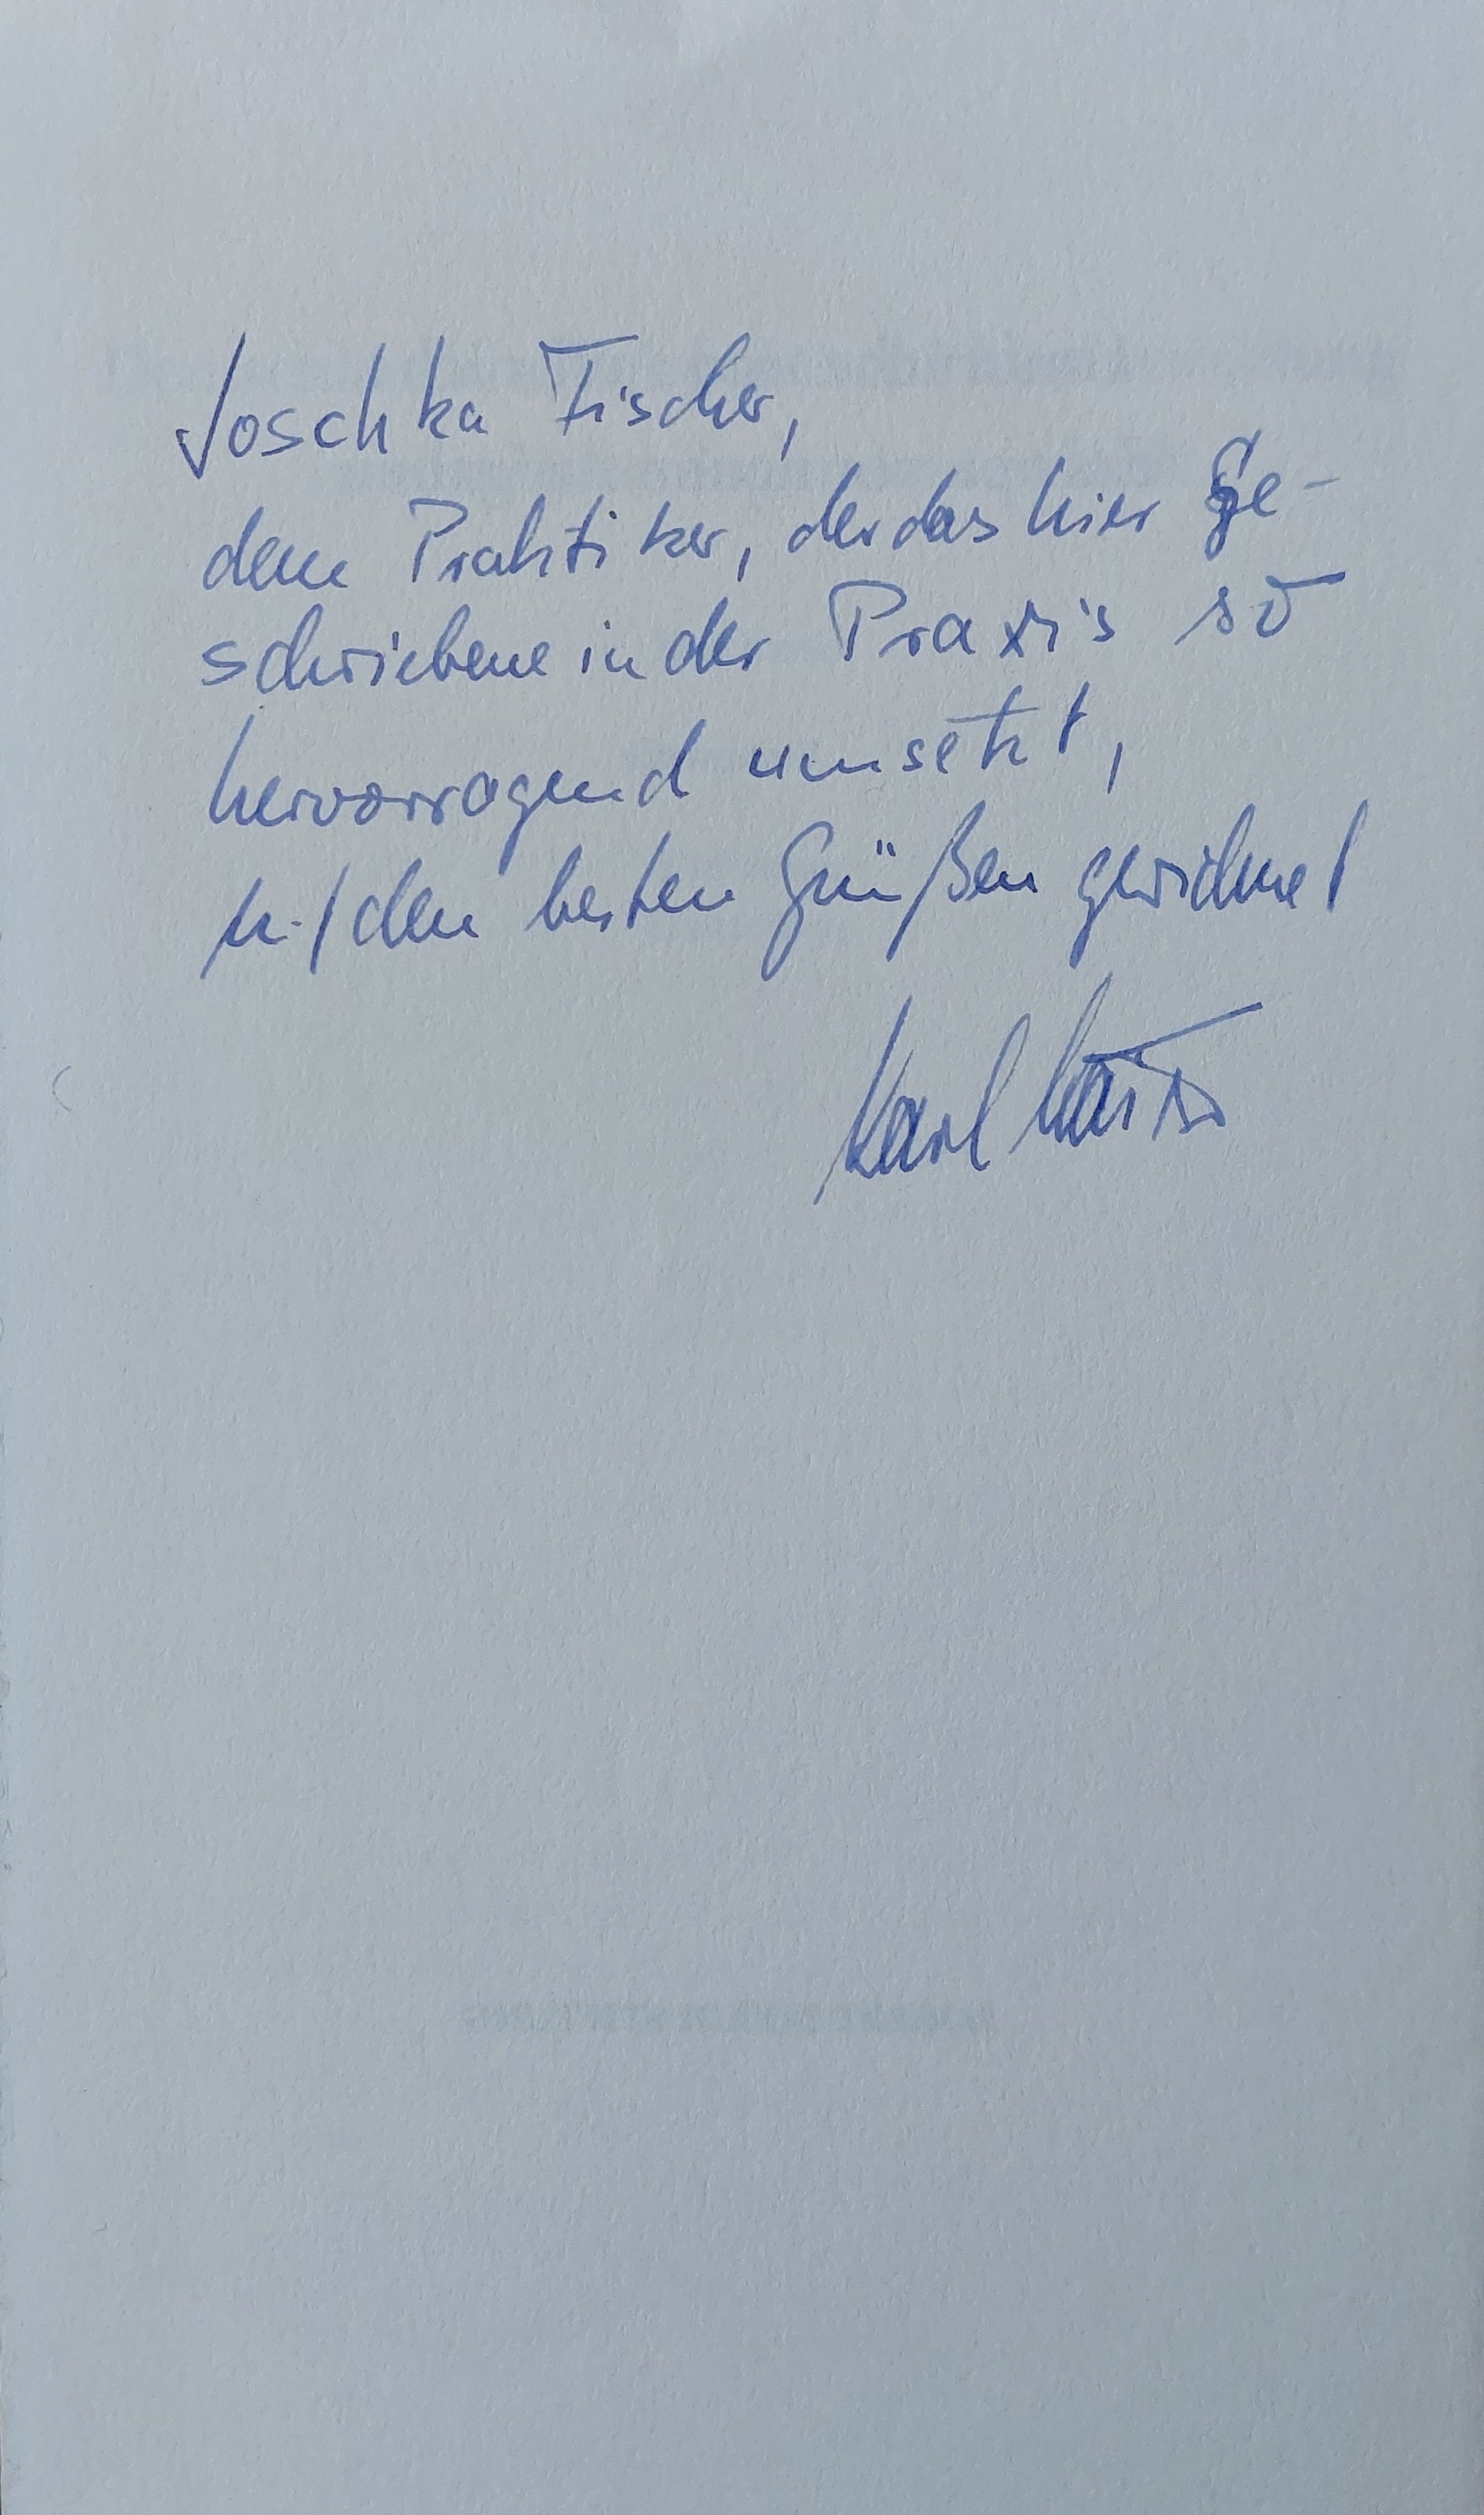 Joschka Fischer,
dem Praktiker, der das hier Ge-
schriebene in der Praxis so
hervorragend umsetzt,
mit den besten Grüßen gewidmet
Karl Kaiser